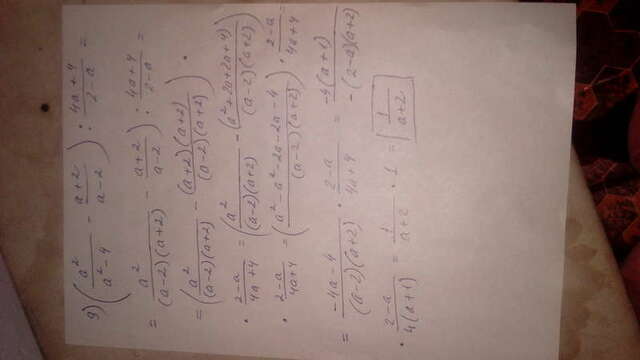 9) (a²/(a²-4) - (a+2)/(a-2)) : (4a+4)/(2-a) =
= (a²/((a-2)(a+2)) - (a+2)/(a-2)) : (4a+4)/(2-a) =
= (a²/((a-2)(a+2)) - ((a+2)(a+2))/((a-2)(a+2))) ·
· (2-a)/(4a+4) = (a²/((a-2)(a+2)) - (a²+2a+2a+4)/((a-2)(a+2))) ·
· (2-a)/(4a+4) = ((a²-a²-2a-2a-4)/((a-2)(a+2))) · (2-a)/(4a+4) =
= (-4a-4)/((a-2)(a+2)) · (2-a)/(4a+4) = (-4(a+1))/(-(2-a)(a+2)) ·
· (2-a)/(4(a+1)) = 1/(a+2) · 1 = 1/(a+2)